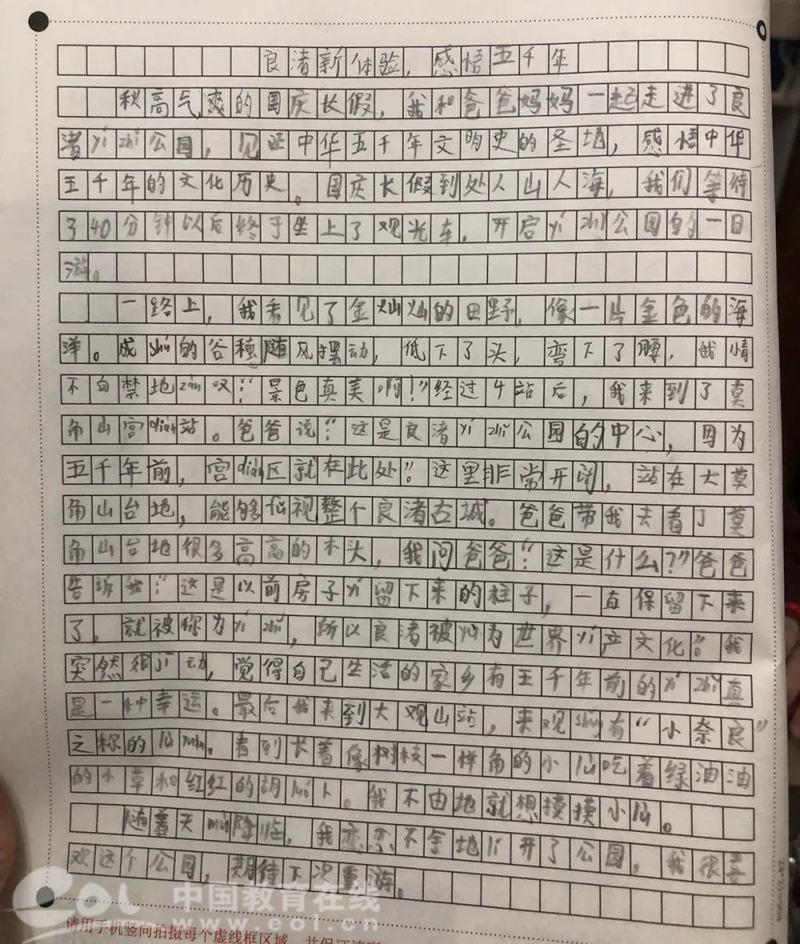 良渚新体验，感悟五千年
秋高气爽的国庆长假，我和爸爸妈妈一起走进了良
渚yí zhǐ公园，见证中华五千年文明史的圣地，感悟中华
五千年的文化历史。国庆长假到处人山人海，我们等待
了40分钟以后终于坐上了观光车，开启yí zhǐ公园的一日
游。
一路上，我看见了金灿灿的田野，像一片金色的海
洋。成shú的谷穗随风摆动，低下了头，弯下了腰，我情
不自禁地zàn叹：“景色真美啊！”经过4站后，我来到了莫
角山宫diàn站。爸爸说：“这是良渚yí zhǐ公园的中心，因为
五千年前，宫diàn区就在此处。”这里非常开阔，站在大莫
角山台地，能够俯视整个良渚古城。爸爸带我去看了莫
角山台地很多高高的木头，我问爸爸：“这是什么？”爸爸
告诉我：“这是以前房子yí留下来的柱子，一直保留下来
了，就被称为yí zhǐ，所以良渚被列为世界yí产文化。”我
突然很jī动，觉得自己生活的家乡有五千年前的yí zhǐ真
是一种幸运。最后我来到大观山站，来观shǎng有“小奈良”
之称的lù 。看到长着像树枝一样角的小lù吃着绿油油
的小草和红红的胡luó卜。我不由地就想摸摸小lù。
随着天mù降临，我恋恋不舍地lí开了公园，我很喜
欢这个公园，期待下次重游。
中国教育在线
www.eol.cn
请用手机竖向拍摄每个虚线框区域，并保证清晰